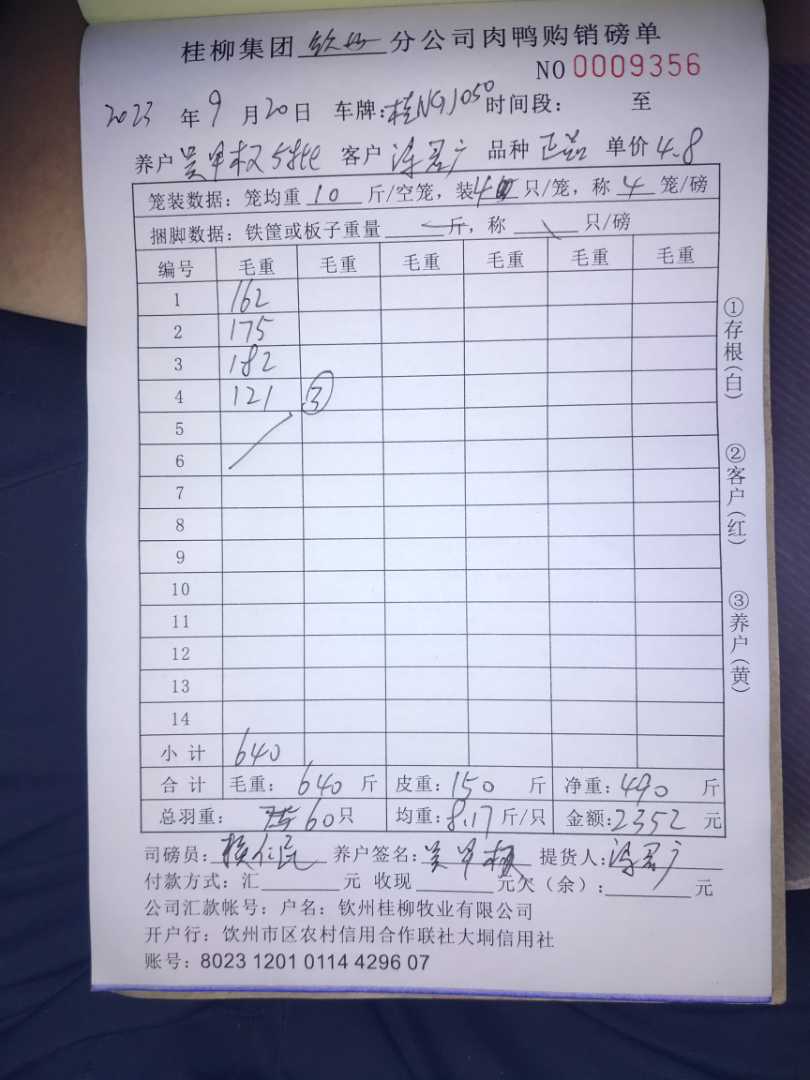 桂柳集团 钦州 分公司肉鸭购销磅单
NO 0009356
2023 年 9 月 20 日 车牌:桂N91050 时间段: 至
养户 吴甲权 5批 客户 品种 正品 单价 4.8
笼装数据: 笼均重 10 斤/空笼, 装 4 只/笼, 称 4 笼/磅
捆脚数据: 铁筐或板子重量 斤, 称 只/磅
编号 毛重 毛重 毛重 毛重 毛重 毛重
1 162
2 175
3 182
4 121 ③
5
6
7
8
9
10
11
12
13
14
小计 640
合计 毛重: 640 斤 皮重: 150 斤 净重: 490 斤
总羽重: 60只 均重: 8.17 斤/只 金额: 2352 元
司磅员: 养户签名: 吴甲权 提货人:
付款方式: 汇 元 收现 元欠(余): 元
公司汇款帐号: 户名: 钦州桂柳牧业有限公司
开户行: 钦州市区农村信用合作联社大垌信用社
账号: 8023 1201 0114 4296 07
①存根(白)
②客户(红)
③养户(黄)